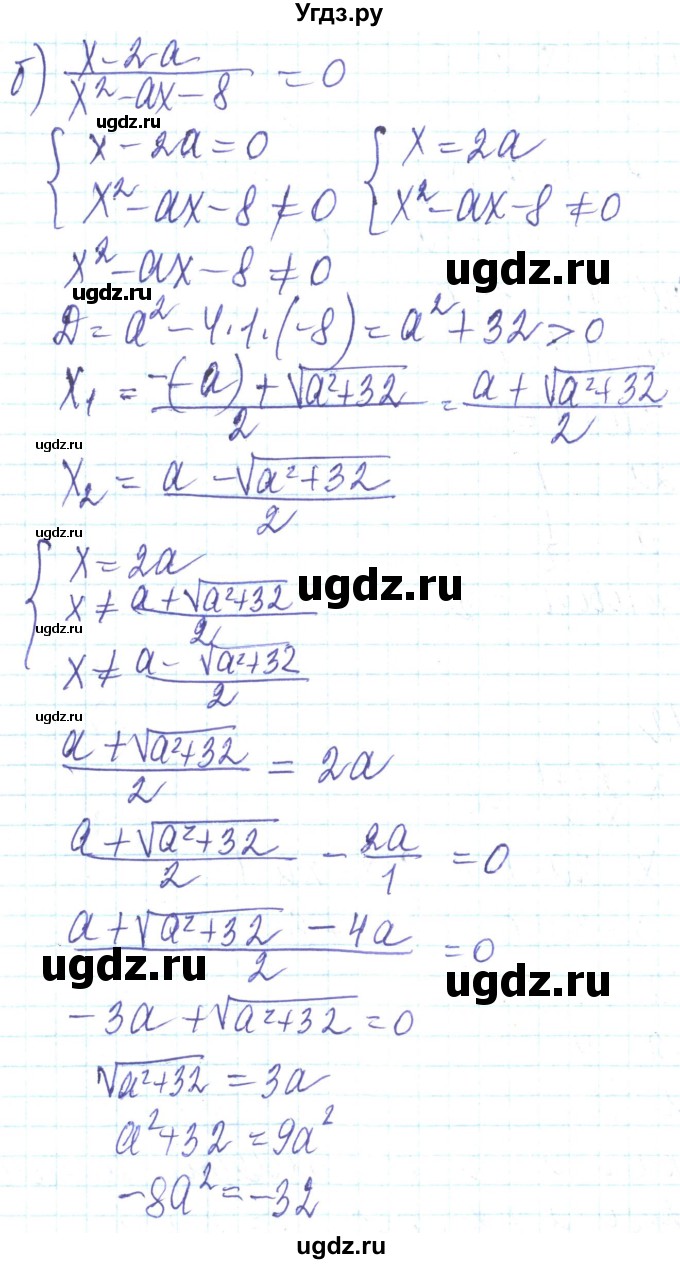 Угдз.ру
б) (x-2a)/(x²-ax-8) = 0
ugdz.ru
{ x-2a=0 { x=2a
x²-ax-8≠0 x²-ax-8≠0
x²-ax-8≠0 ugdz.ru
ugdz.ru
Д=a²-4·1·(-8)=a²+32>0
x₁ = (-(-a)+√(a²+32))/2 = (a+√(a²+32))/2
ugdz.ru
x₂ = (a-√(a²+32))/2
ugdz.ru
{ x=2a
x≠(a+√(a²+32))/2 ugdz.ru
ugdz.ru
x≠(a-√(a²+32))/2
ugdz.ru
(a+√(a²+32))/2 = 2a
(a+√(a²+32))/2 - 2a/1 = 0
(a+√(a²+32)-4a)/2 = 0
ugdz.ru ugdz.ru
-3a+√(a²+32)=0
√(a²+32)=3a
a²+32=9a²
-8a²=-32
ugdz.ru